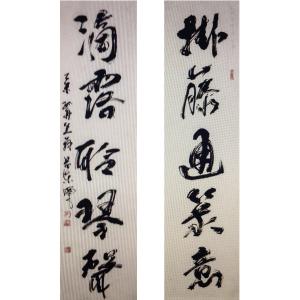 掛藤通篆意
滴露聆琴聲